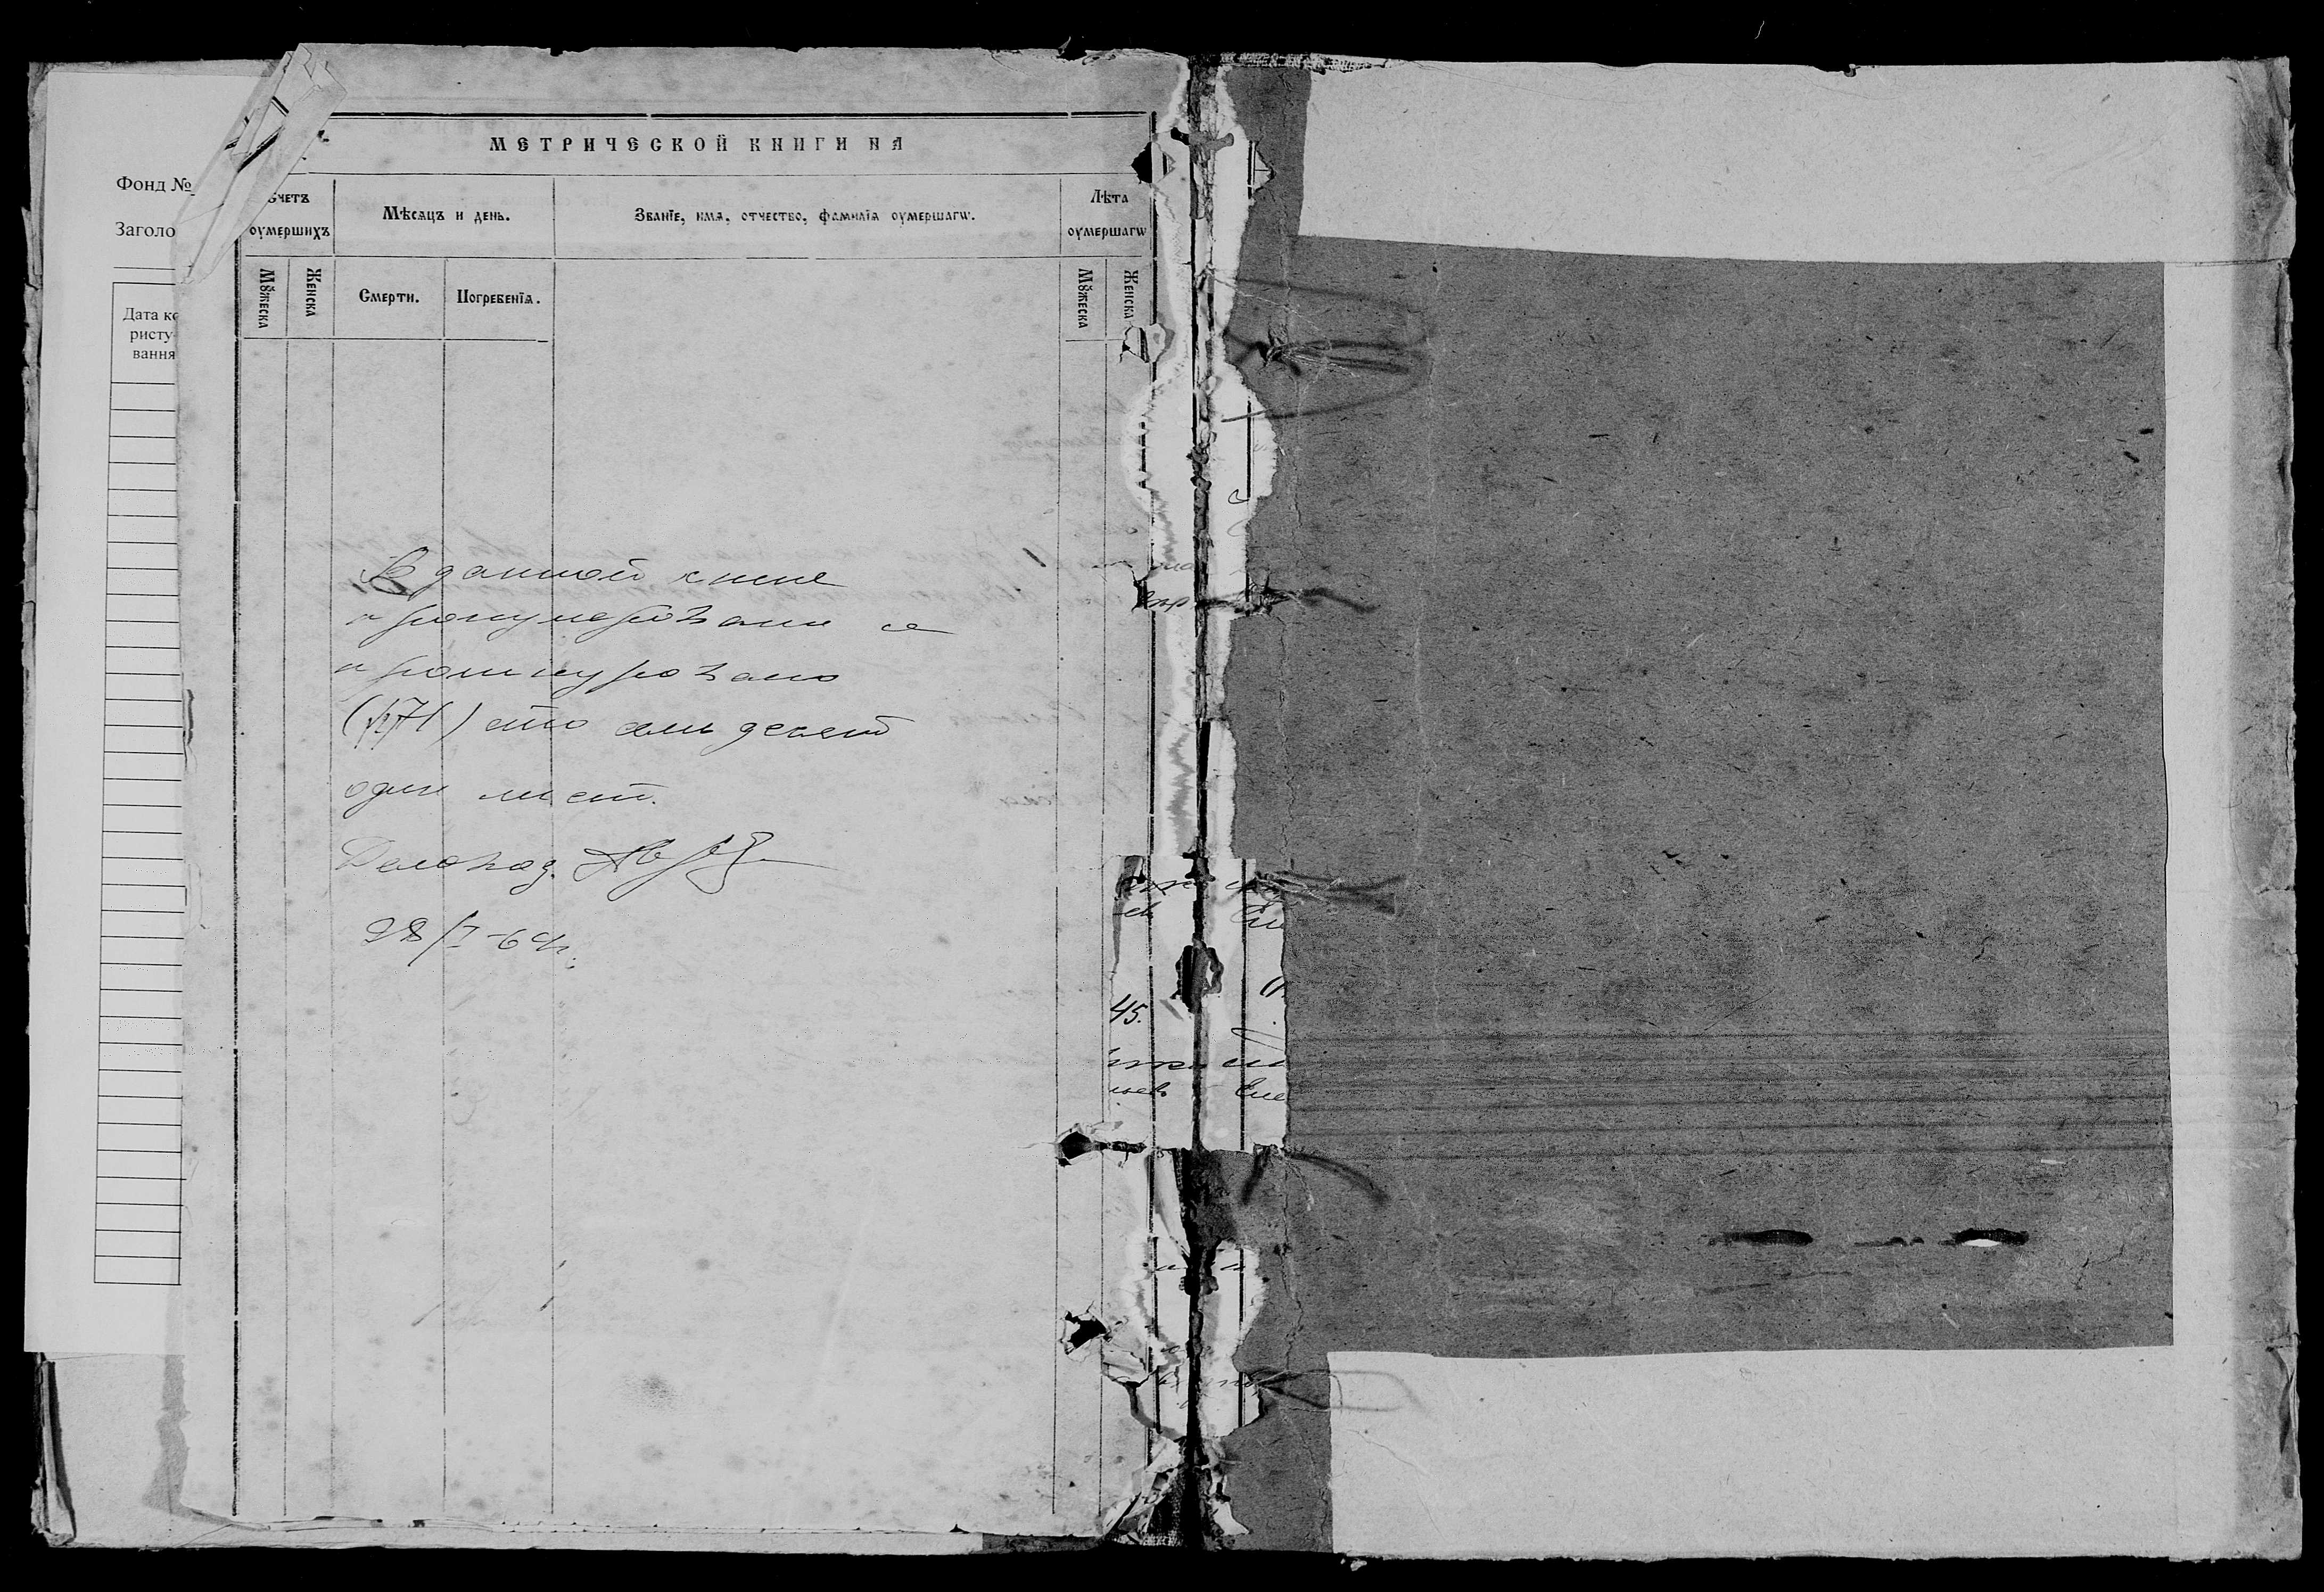 МЕТРИЧЕСКОЙ КНИГИ НА
Фонд №
Заголо
Дата ко
ристу-
вання
Счетъ
оумершихъ
Мѣсяцъ и день.
Званїе, имя, отчество, фамилїя оумершагѡ.
Лѣта
оумершагѡ
Мꙋжеска
Женска
Смерти.
Погребенїя.
Мꙋжеска
Женска
В данной книге
пронумеровано и
прошнуровано
(171) сто семьдесят
один лист.
Деловод.
28/I-64г.
45.